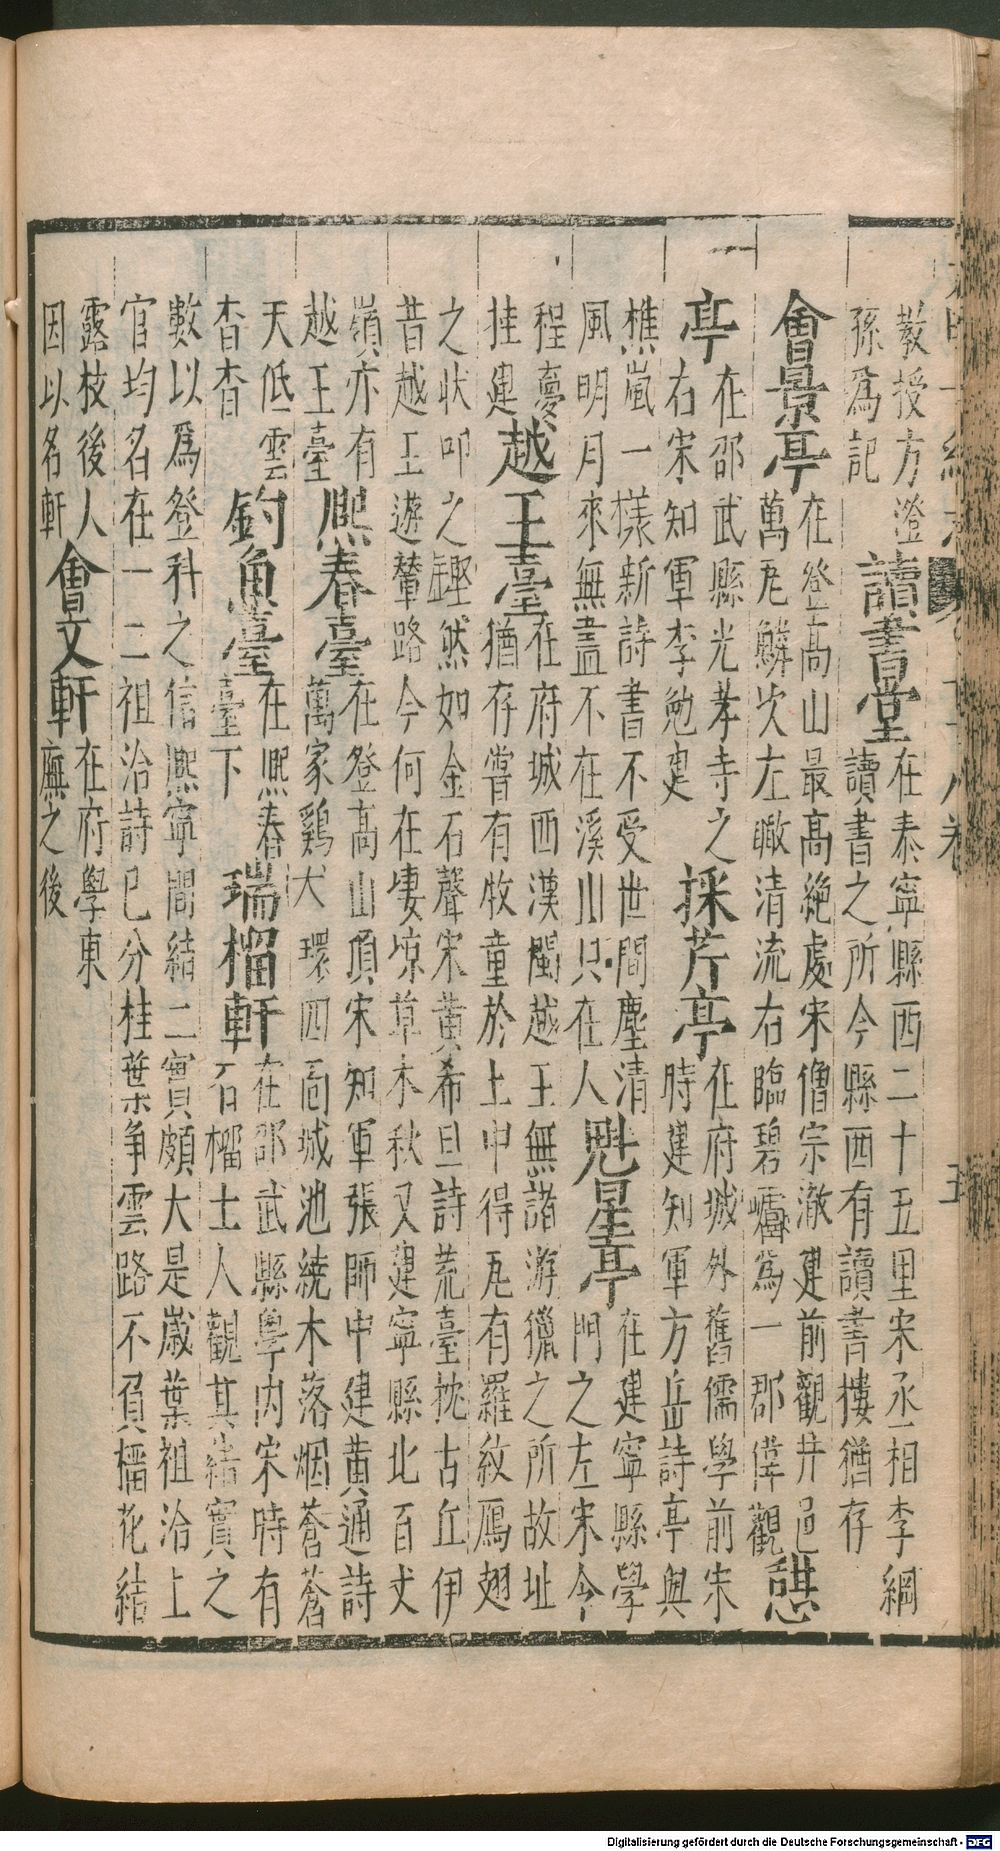 教授方澄
孫為記
讀書堂
在泰寧縣西二十五里宋丞相李綱
讀書之所今縣西有讀書樓猶存
會景亭
在登高山最高絶處宋僧宗澈建前觀井邑
萬瓦鱗次左瞰清流右臨碧巘為一郡偉觀
憇
亭
在邵武縣光孝寺之
右宋知軍李勉建
採芹亭
在府城外舊儒學前宋
時建知軍方岳詩亭與
樵嵐一樣新詩書不受世間塵清
風明月來無盡不在溪山只在人
魁星亭
在建寧縣學
門之左宋令
程憂
挂建
越王臺
在府城西漢閩越王無諸游獵之所故址
猶存嘗有牧童於土中得瓦有羅紋鴈翅
之状叩之鏗然如金石聲宋黄希旦詩荒臺枕古丘伊
昔越王遊輦路今何在凄凉草木秋又建寧縣北百丈
嶺亦有
越王臺
熈春臺
在登髙山頂宋知軍張師中建黄通詩
萬家鷄犬環四面城池繞木落烟蒼蒼
天低雲
杳杳
釣魚臺
在熈春
臺下
瑞榴軒
在邵武縣學内宋時有
石榴士人觀其結實之
數以為登科之信熈寧間結二實頗大是歳葉祖洽上
官均名在一二祖洽詩已分桂葉爭雲路不負榴花結
露枝後人
因以名軒
會文軒
在府學東
廡之後
Digitalisierung gefördert durch die Deutsche Forschungsgemeinschaft - DFG